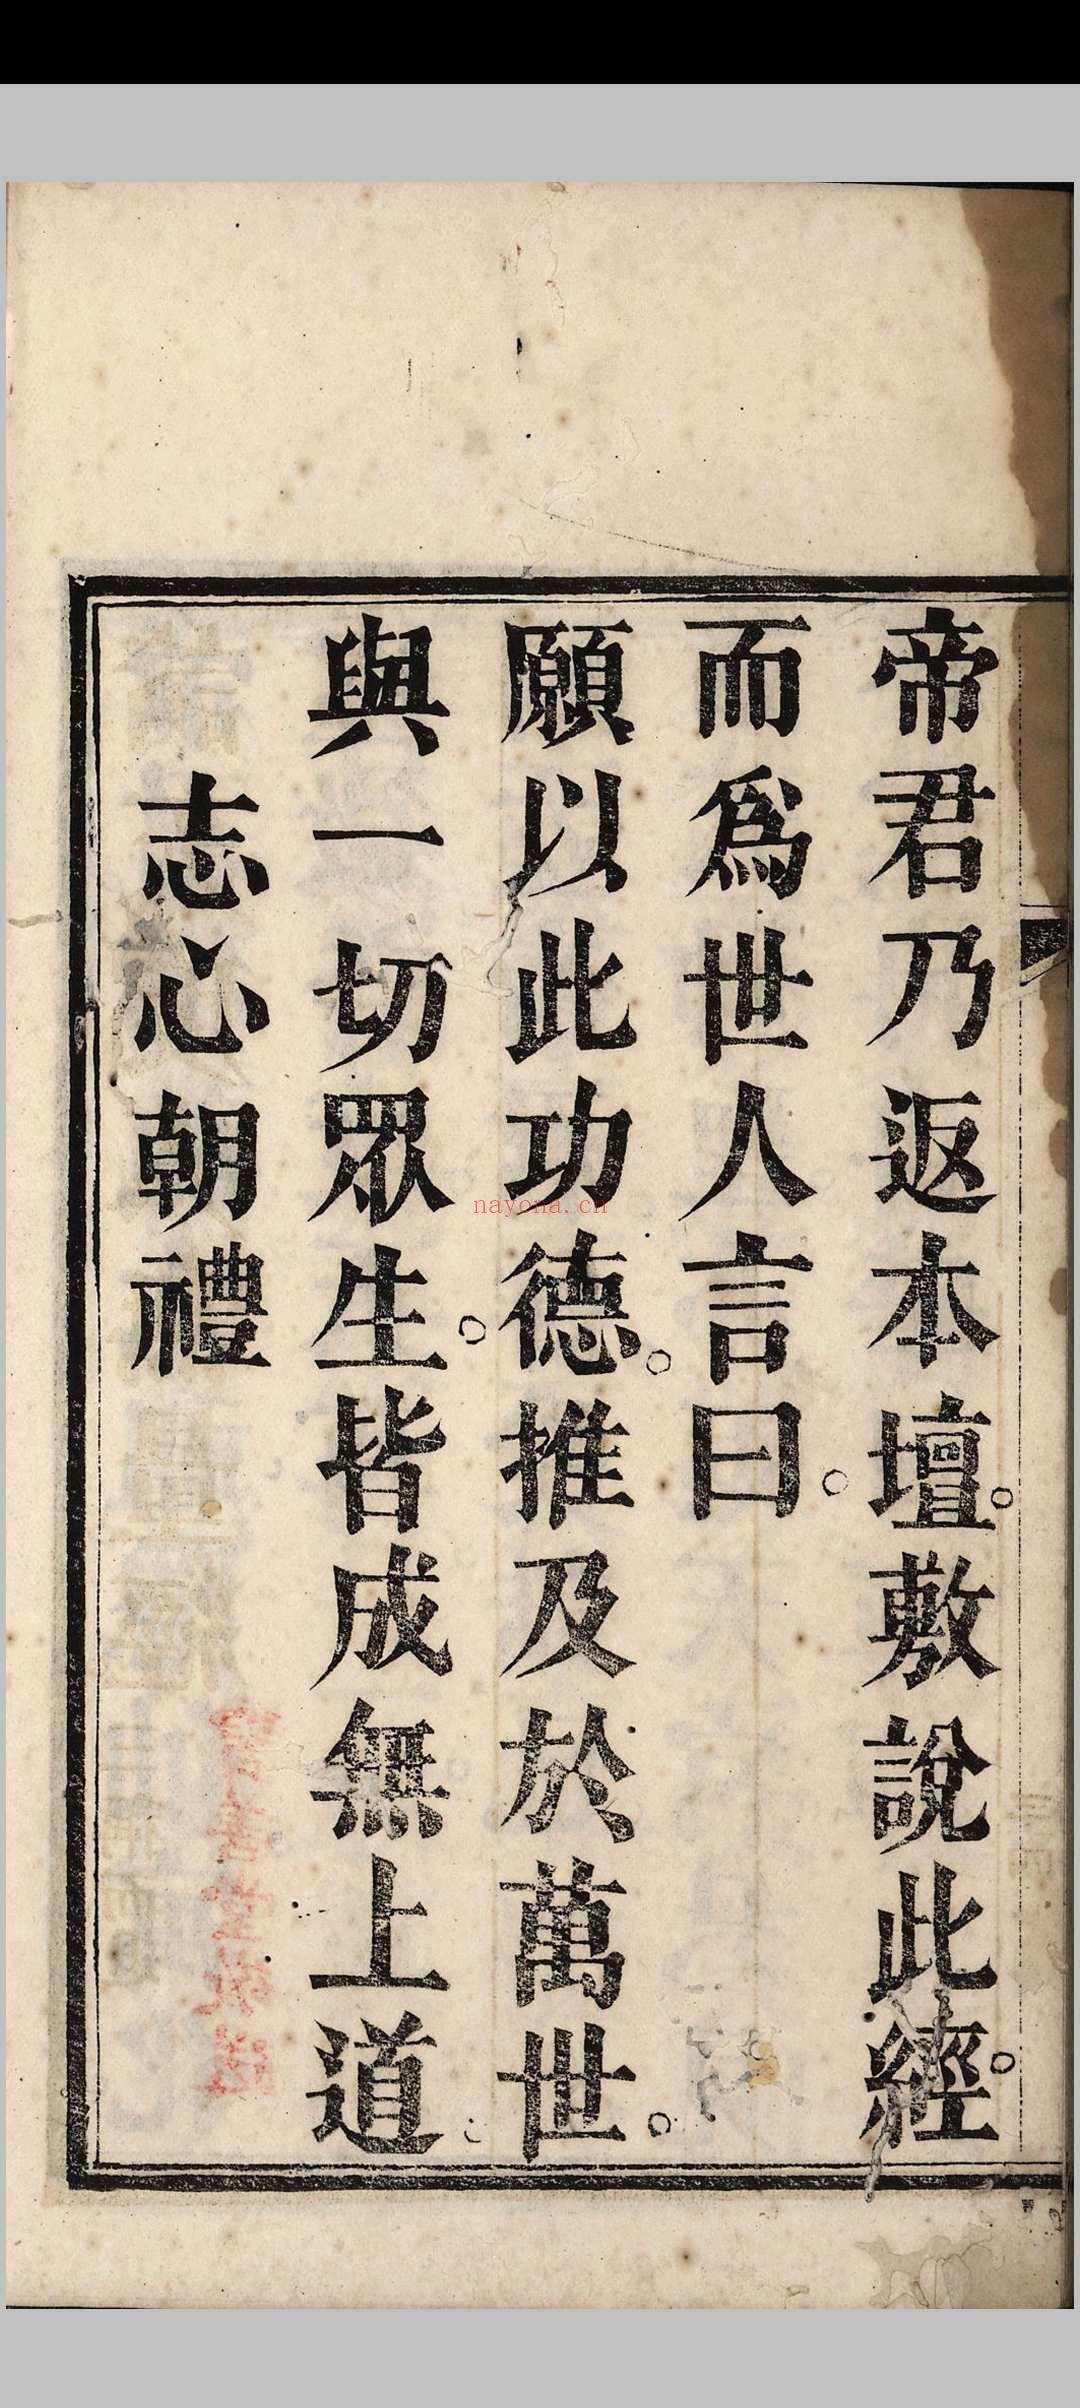 帝君乃返本壇。敷說此經。
而爲世人言曰。
願以此功德。推及於萬世。
與一切眾生。皆成無上道。
志心朝禮
nayona.cn